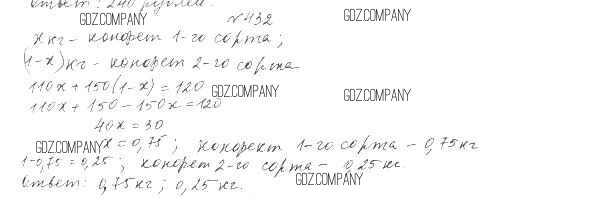 Ответ: 240 рублей.
GDZ.COMPANY №432 GDZ.COMPANY
x кг - конфет 1-го сорта;
(1-x) кг - конфет 2-го сорта
110x + 150(1-x) = 120 GDZ.COMPANY
110x + 150 - 150x = 120 GDZ.COMPANY
40x = 30
GDZ.COMPANY x = 0,75; конфект 1-го сорта - 0,75 кг
1-0,75 = 0,25; конфет 2-го сорта - 0,25 кг.
Ответ: 0,75 кг; 0,25 кг. GDZ.COMPANY